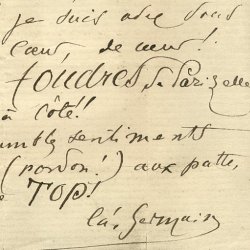 je suis avec vous
cœur, de cœur!
foudres de Parizelle
à côté!!
umble sentiments
(pardon!) aux patte,
e TOP!
Germain